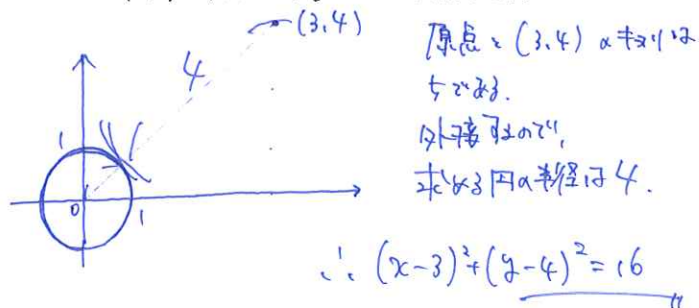 (3,4)
4
1
0
1
原点と(3,4)のキョリは
5である.
外接するので,
求める円の半径は4.
∴ (x-3)²+(y-4)²=16